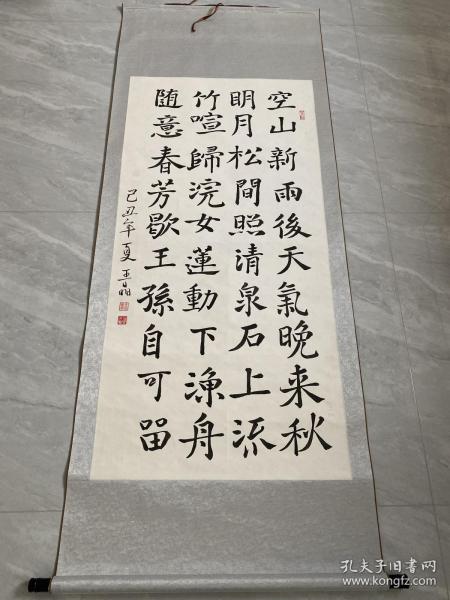 空山新雨後天氣晚来秋
明月松間照清泉石上流
竹喧歸浣女蓮動下漁舟
随意春芳歇王孫自可留
己丑年夏
孔夫子旧书网
www.kongfz.com